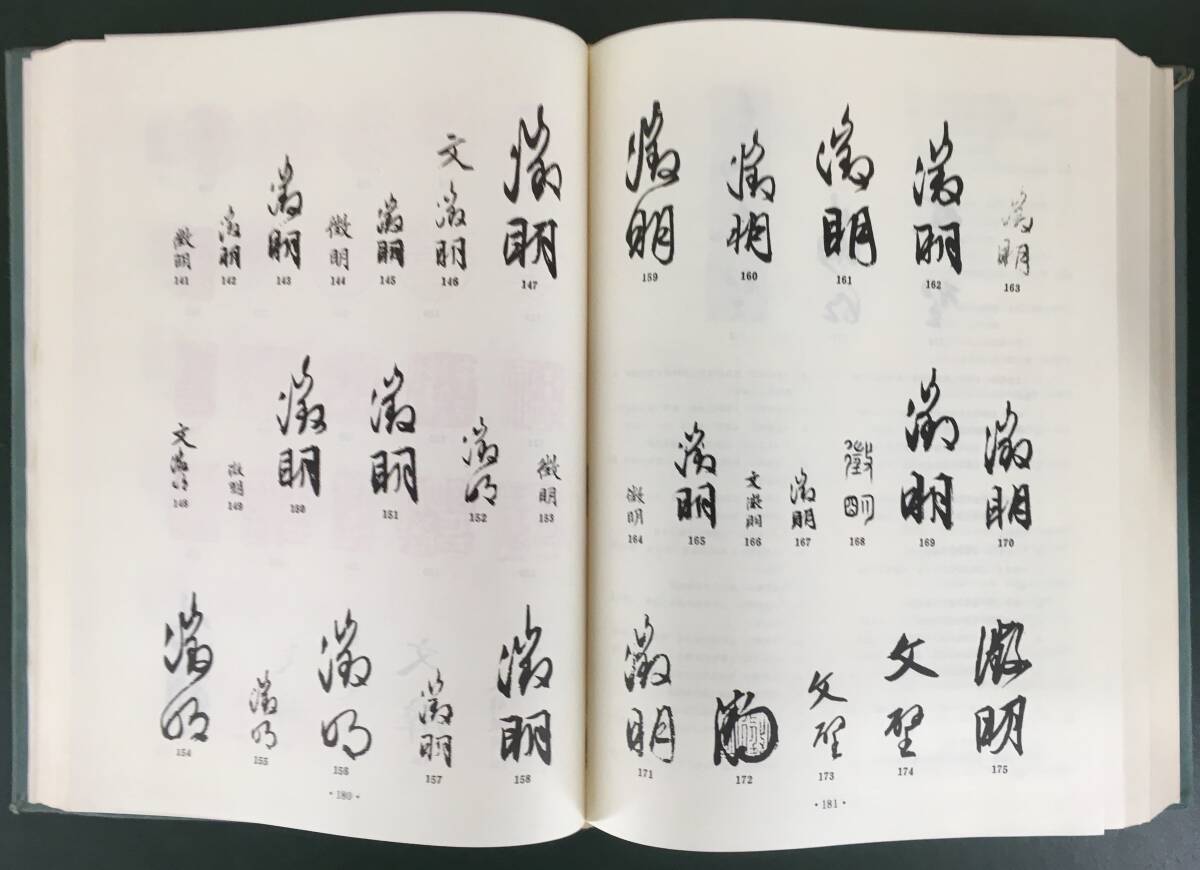 徵明
141
徵明
142
徵明
143
徵明
144
徵明
145
文徵明
146
徵明
147
文徵明
148
徵明
149
徵明
150
徵明
151
徵明
152
徵明
153
徵明
154
徵明
155
徵明
156
徵明
157
徵明
158
·180·
徵明
159
徵明
160
徵明
161
徵明
162
徵明
163
徵明
164
徵明
165
文徵明
166
徵明
167
徵明
168
徵明
169
徵明
170
徵明
171
172
文壁
173
文壁
174
徵明
175
·181·